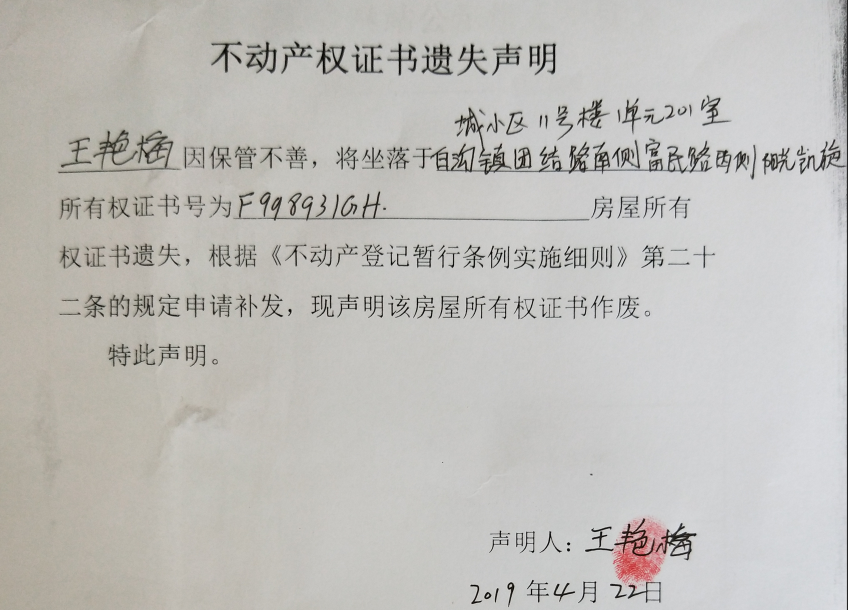 不动产权证书遗失声明
城小区11号楼1单元201室
王艳梅因保管不善，将坐落于自沟镇团结路南侧富民路西侧阳光凯旋
所有权证书号为F998931GH.房屋所有
权证书遗失，根据《不动产登记暂行条例实施细则》第二十
二条的规定申请补发，现声明该房屋所有权证书作废。
特此声明。
声明人：王艳梅
2019年4月22日